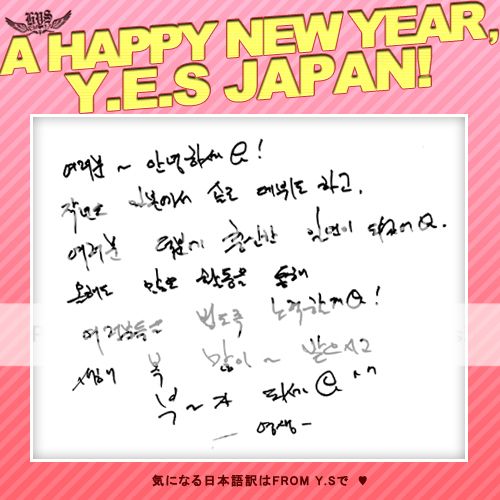 A HAPPY NEW YEAR,
Y.E.S JAPAN!
여러분 ~ 안녕하세요!
일본에서 솔로 데뷔도 하고,
여러분 덕분에 일년이 되었어요.
올해도 많은 활동을 통해
여러분들을 뵙도록 노력할게요!
새해 복 많이 ~ 받으시고
부 ~ 자 되세요 ^^
- 영생 -
気になる日本語訳はFROM Y.Sで ♥